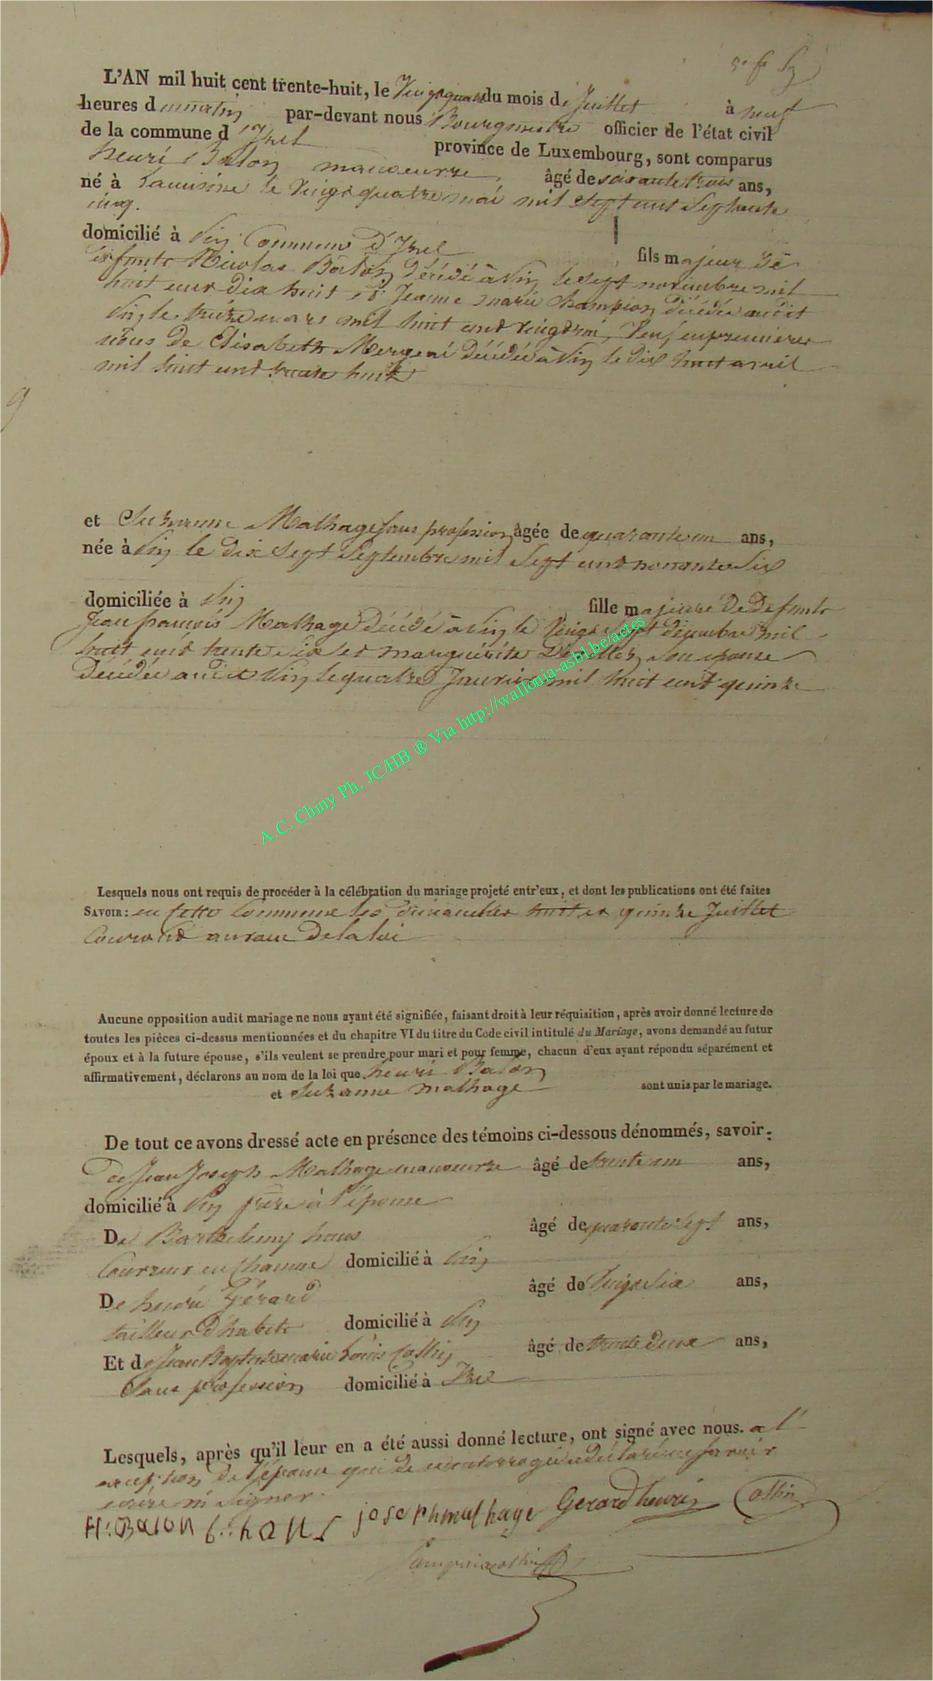 L'AN mil huit cent trente-huit, le Vingtquatre du mois de Juillet à neuf
heures d matin par-devant nous Bourgmestre officier de l'état civil
de la commune d'Izel province de Luxembourg, sont comparus
henri Balon manoeuvre, âgé de soixante trois ans,
né à le Vingt quatre mai mil sept cent septante
cinq.
domicilié à Pin Commune d'Izel fils majeur de
défunts Nicolas Balon décédé à Pin le sept novembre mil
huit cent dix huit et Jeanne marie Champion décédée audit
Pin le treize mars mil huit cent vingt , Veuf en premières
nôces de Elisabeth décédée à Pin le dix huit avril
mil huit cent trente huit
et Suzanne Malhage sans profession, âgée de quarante un ans,
née à Pin le dix sept Septembre mil sept cent nonante six
domiciliée à Pin fille majeure de defunts
Jean françois Malhage décédé à Pin le Vingt sept décembre mil
huit cent trente six et marguérite son épouse
décédée audit Pin le quatre Janvier mil huit cent quinze
A.C. Chiny Ph. JC/HB ® Via http://wallonia-asbl.be/actes
Lesquels nous ont requis de procéder à la célébration du mariage projeté entr'eux, et dont les publications ont été faites
SAVOIR: en cette Commune les dimanches huit et quinze Juillet
Courant au vœu de la loi
Aucune opposition audit mariage ne nous ayant été signifiée, faisant droit à leur réquisition, après avoir donné lecture de
toutes les pièces ci-dessus mentionnées et du chapitre VI du titre du Code civil intitulé du Mariage, avons demandé au futur
époux et à la future épouse, s'ils veulent se prendre pour mari et pour femme, chacun d'eux ayant répondu séparément et
affirmativement, déclarons au nom de la loi que henri Balon
et Suzanne malhage sont unis par le mariage.
De tout ce avons dressé acte en présence des témoins ci-dessous dénommés, savoir:
de Jean Joseph Malhage manoeuvre âgé de trente un ans,
domicilié à Pin frère à l'épouse
De Barthelemy hans âgé de quarante sept ans,
domicilié à Pin
De henri Gérard âgé de Vingt six ans,
tailleur d'habits domicilié à Pin
Et de Jean Baptiste marie Louis Collin âgé de trente deux ans,
Sans profession domicilié à Izel
Lesquels, après qu'il leur en a été aussi donné lecture, ont signé avec nous. a l'
exception de l'épouse qui de ce interrogée a déclaré ne savoir
écrire ni signer.
H: Balon B: hans joseph malhage Gerard henri Collin